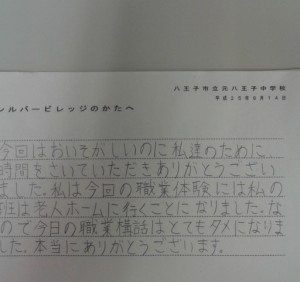 八王子市立元八王子中学校
平成25年6月14日
シルバービレッジのかたへ
今回はおいそがしいのに私達のために、
時間をさいていただきありがとうござい
ました。私は今回の職業体験には私の
班は老人ホームに行くことになりました。な
ので今日の職業構話はとてもタメになりま
した。本当にありがとうございます。